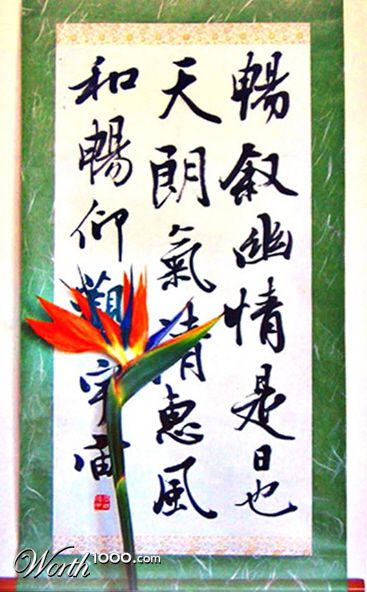 暢叙幽情是日也
天朗氣清恵風
和暢仰觀宇宙
Worth1000.com